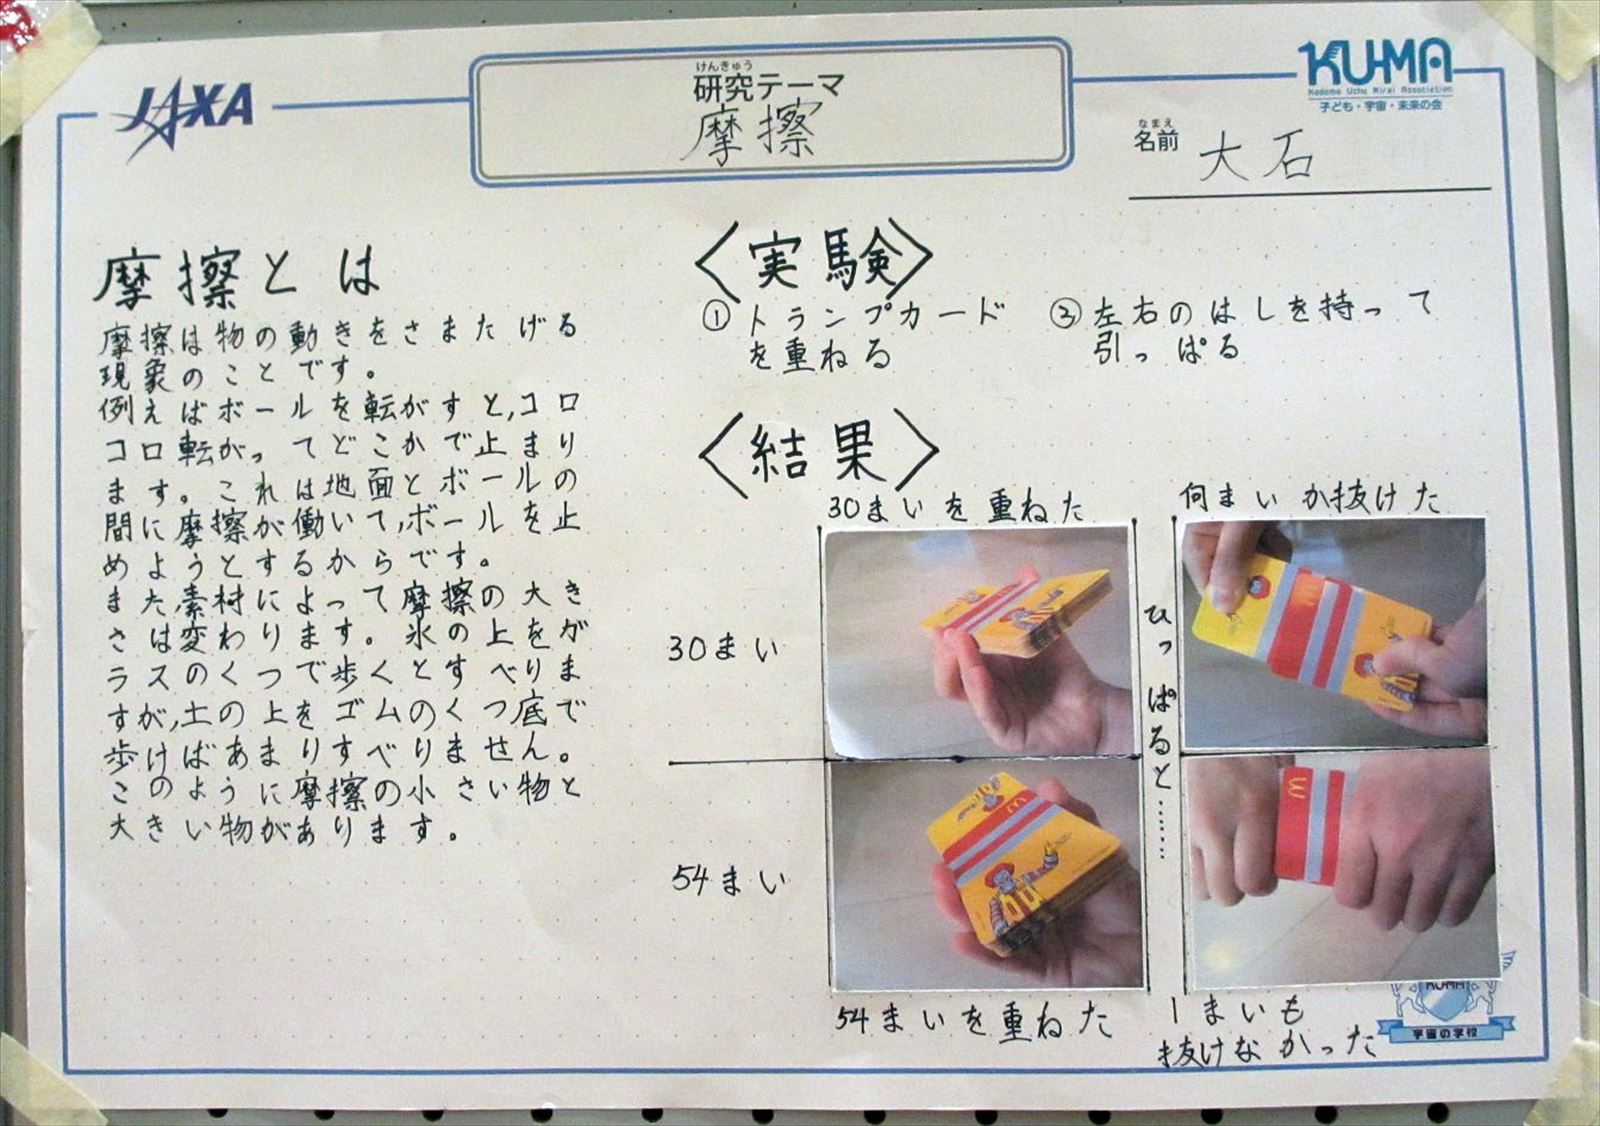 JAXA
けんきゅう
研究テーマ
摩擦
KU-MA
Kodomo Uchu Mirai Association
子ども・宇宙・未来の会
なまえ
名前
大石
摩擦とは
摩擦は物の動きをさまたげる
現象のことです。
例えばボールを転がすと,コロ
コロ転がってどこかで止まり
ます。これは地面とボールの
間に摩擦が働いて,ボールを止
めようとするからです。
また素材によって摩擦の大き
さは変わります。氷の上をガ
ラスのくつで歩くとすべりま
すが,土の上をゴムのくつ底で
歩けばあまりすべりません。
このように摩擦の小さい物と
大きい物があります。
〈実験〉
①トランプカード
を重ねる
②左右のはしを持って
引っぱる
〈結果〉
30まいを重ねた
何まいか抜けた
30まい
ひっぱると……
54まい
54まいを重ねた
1まいも
抜けなかった
KUMA
宇宙の学校